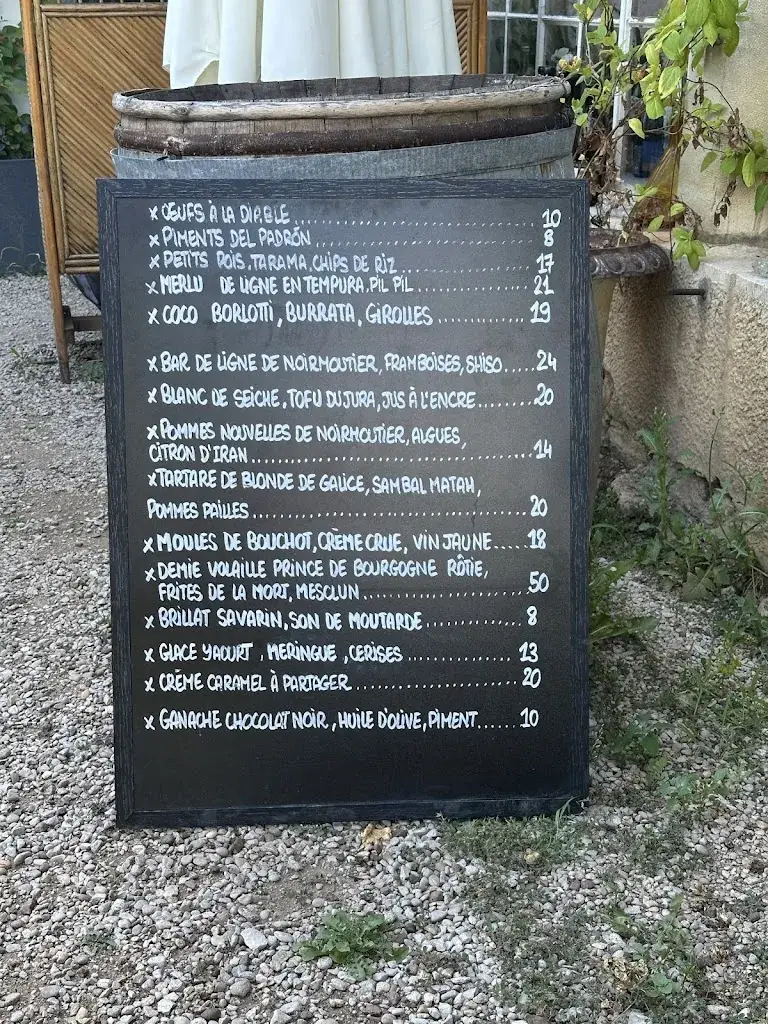 x ŒUFS À LA DIABLE.......................... 10
x PIMENTS DEL PADRÓN........................ 8
x PETITS POIS, TARAMA, CHIPS DE RIZ............... 17
x MERLU DE LIGNE EN TEMPURA, PIL PIL............ 21
x COCO BORLOTTI, BURRATA, GIROLLES............ 19
x BAR DE LIGNE DE NOIRMOUTIER, FRAMBOISES, SHISO..... 24
x BLANC DE SEICHE, TOFU DU JURA, JUS À L'ENCRE........ 20
x POMMES NOUVELLES DE NOIRMOUTIER, ALGUES,
CITRON D'IRAN.............................. 14
x TARTARE DE BLONDE DE GALICE, SAMBAL MATAH,
POMMES PAILLES............................ 20
x MOULES DE BOUCHOT, CRÈME CRUE, VIN JAUNE..... 18
x DEMIE VOLAILLE PRINCE DE BOURGOGNE RÔTIE,
FRITES DE LA MORT, MESCLUN.................. 50
x BRILLAT SAVARIN, SON DE MOUTARDE............ 8
x GLACE YAOURT, MERINGUE, CERISES............ 13
x CRÈME CARAMEL À PARTAGER.................. 20
x GANACHE CHOCOLAT NOIR, HUILE D'OLIVE, PIMENT...... 10